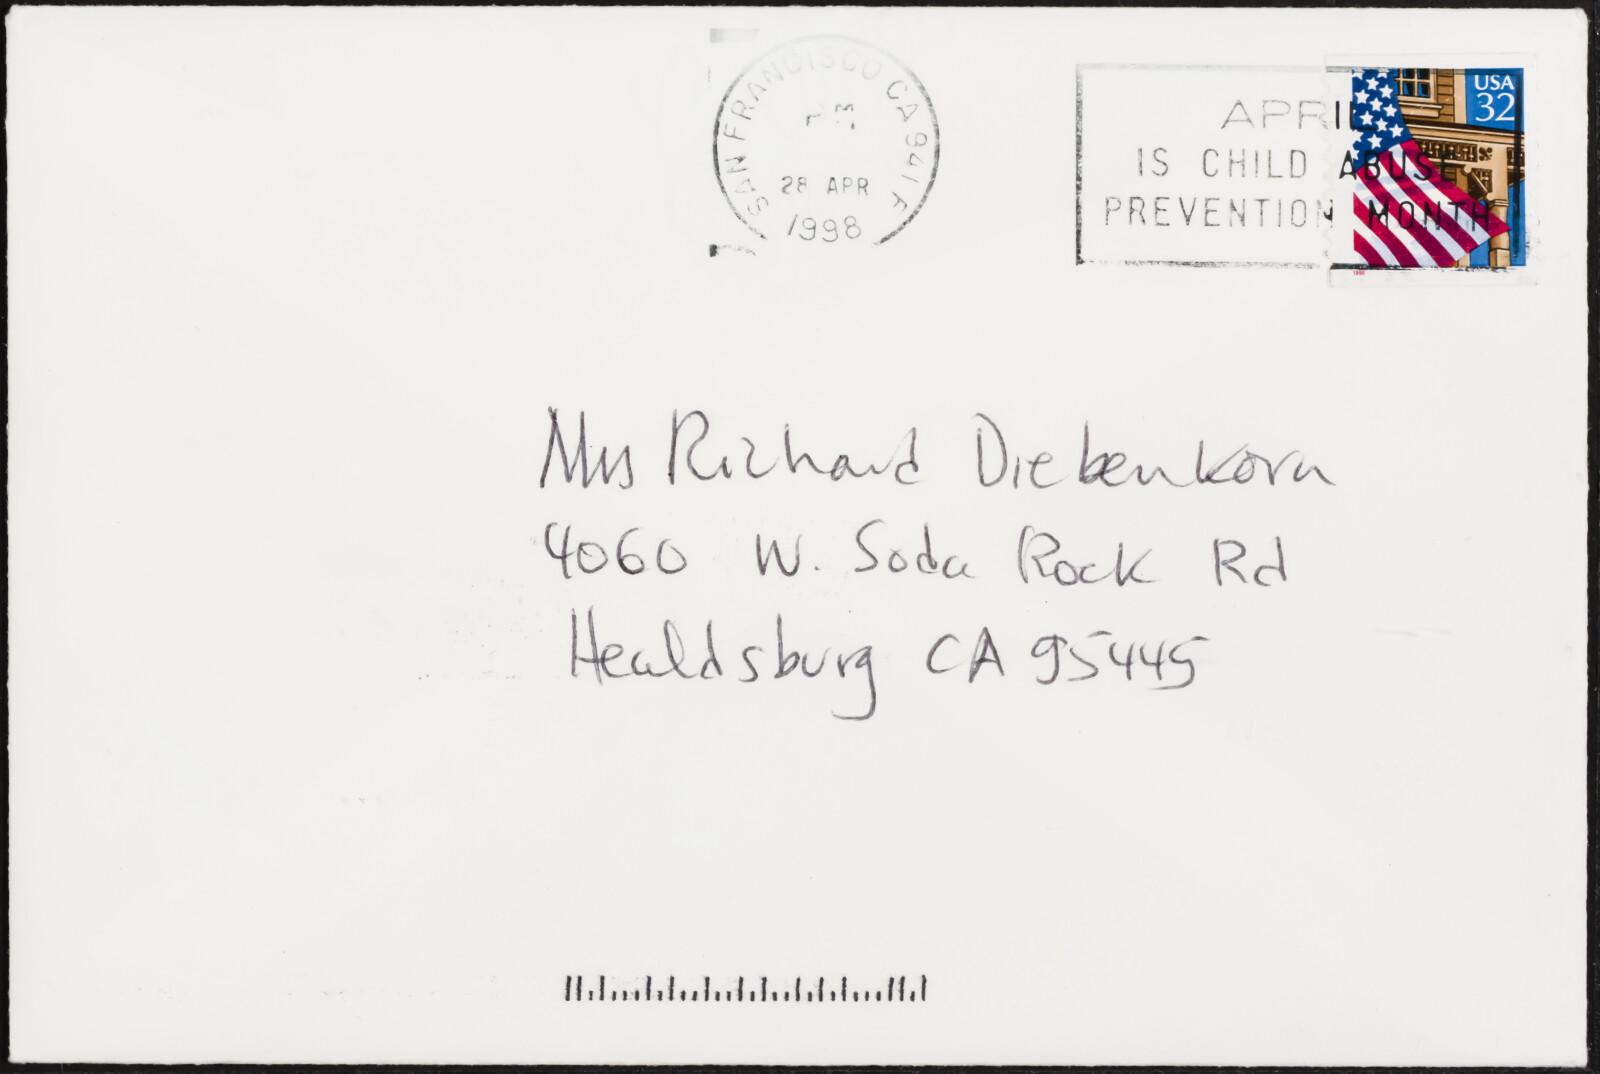 SAN FRANCISCO CA 941
PM
28 APR
1998
APRIL
IS CHILD ABUSE
PREVENTION MONTH
USA
32
Mrs Richard Diebenkorn
4060 W. Soda Rock Rd
Healdsburg CA 95445